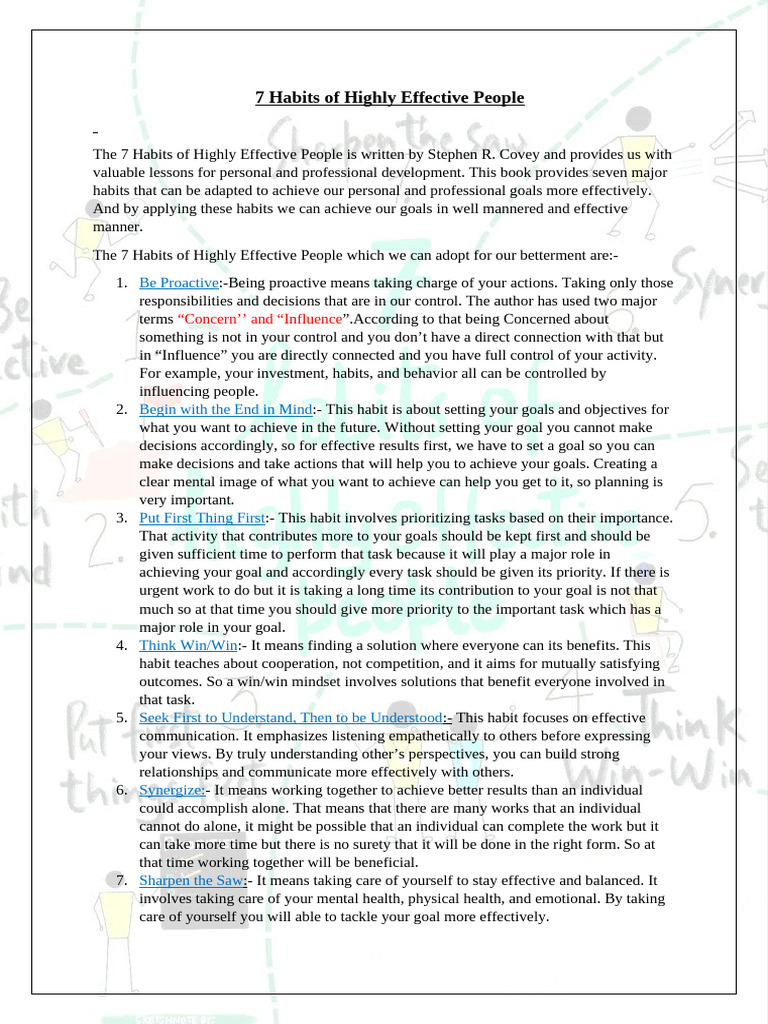 7 Habits of Highly Effective People
The 7 Habits of Highly Effective People is written by Stephen R. Covey and provides us with
valuable lessons for personal and professional development. This book provides seven major
habits that can be adapted to achieve our personal and professional goals more effectively.
And by applying these habits we can achieve our goals in well mannered and effective
manner.
The 7 Habits of Highly Effective People which we can adopt for our betterment are:-
1. Be Proactive:-Being proactive means taking charge of your actions. Taking only those
responsibilities and decisions that are in our control. The author has used two major
terms “Concern’’ and “Influence”.According to that being Concerned about
something is not in your control and you don’t have a direct connection with that but
in “Influence” you are directly connected and you have full control of your activity.
For example, your investment, habits, and behavior all can be controlled by
influencing people.
2. Begin with the End in Mind:- This habit is about setting your goals and objectives for
what you want to achieve in the future. Without setting your goal you cannot make
decisions accordingly, so for effective results first, we have to set a goal so you can
make decisions and take actions that will help you to achieve your goals. Creating a
clear mental image of what you want to achieve can help you get to it, so planning is
very important.
3. Put First Thing First:- This habit involves prioritizing tasks based on their importance.
That activity that contributes more to your goals should be kept first and should be
given sufficient time to perform that task because it will play a major role in
achieving your goal and accordingly every task should be given its priority. If there is
urgent work to do but it is taking a long time its contribution to your goal is not that
much so at that time you should give more priority to the important task which has a
major role in your goal.
4. Think Win/Win:- It means finding a solution where everyone can its benefits. This
habit teaches about cooperation, not competition, and it aims for mutually satisfying
outcomes. So a win/win mindset involves solutions that benefit everyone involved in
that task.
5. Seek First to Understand, Then to be Understood:- This habit focuses on effective
communication. It emphasizes listening empathetically to others before expressing
your views. By truly understanding other’s perspectives, you can build strong
relationships and communicate more effectively with others.
6. Synergize:- It means working together to achieve better results than an individual
could accomplish alone. That means that there are many works that an individual
cannot do alone, it might be possible that an individual can complete the work but it
can take more time but there is no surety that it will be done in the right form. So at
that time working together will be beneficial.
7. Sharpen the Saw:- It means taking care of yourself to stay effective and balanced. It
involves taking care of your mental health, physical health, and emotional. By taking
care of yourself you will able to tackle your goal more effectively.
Sharpen the saw
7
habits of
highly effective
people
Be
2.
5.
6.
Put first
things first
3.
4.
Think
Win-Win